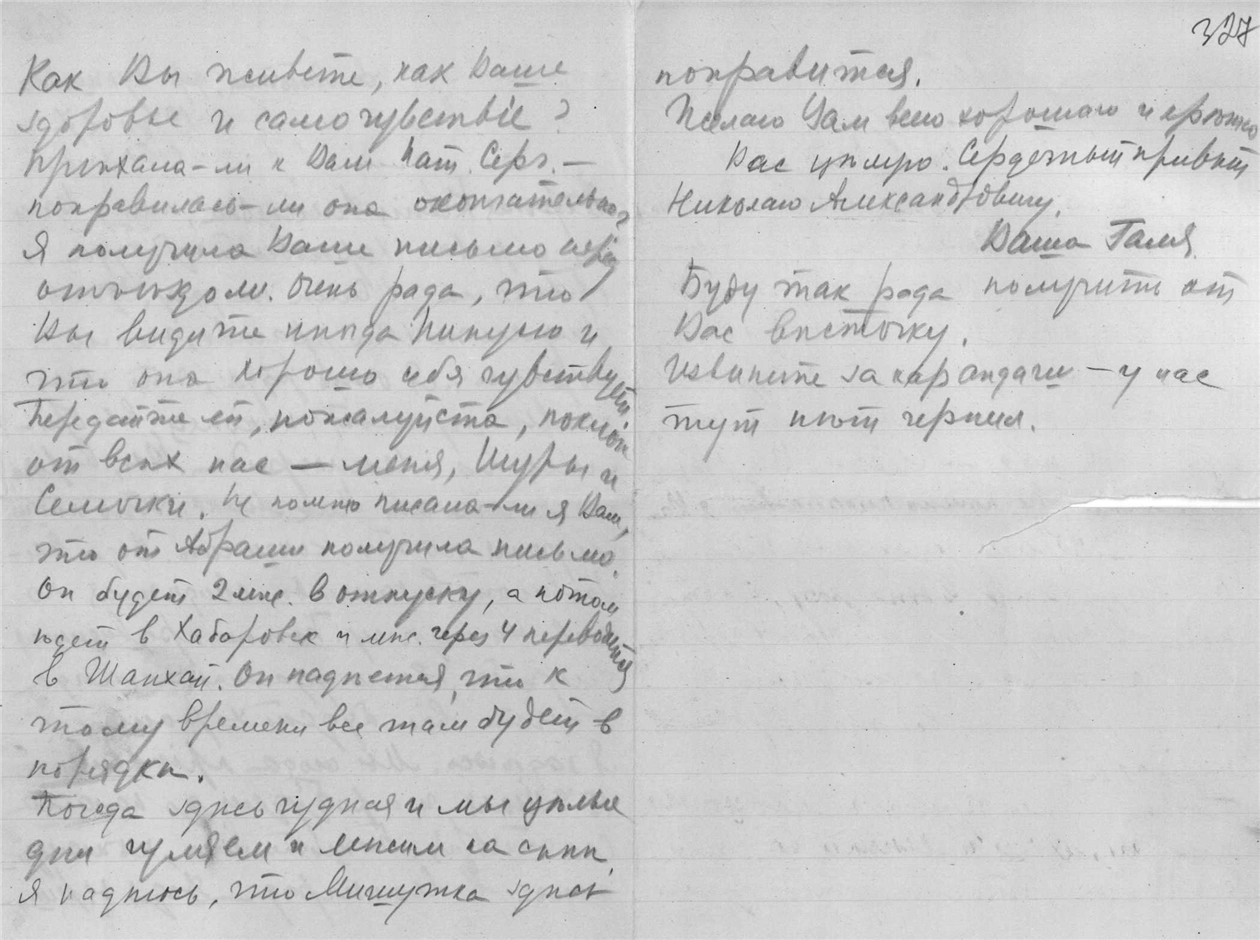 327
Как Вы живете, как Ваше
здоровье и самочувствіе?
Пріѣхала-ли к Вам Нат. Серг. –
поправилась-ли она окончательно?
Я получила Ваше письмо перед
отъѣздом. Очень рада, что
Вы видите иногда и
что она хорошо себя чувствует.
Передайте ей, пожалуйста, поклон
от всѣх нас — меня, Шуры и
Семочки. Не помню писала-ли я Вам,
что от Абраши получила письмо.
Он будет 2 мѣс. в отпуску, а потом
ѣдет в Хабаровск и мѣс. через 4 переводится
в Шанхай. Он надѣется, что к
тому времени все там будет в
порядкѣ.
Погода здѣсь чудная и мы цѣлые
дни гуляем и лежим на снѣгу.
Я надѣюсь, что Мишутка здѣсь
поправится.
Желаю Вам всего хорошаго и крѣпко
Вас цѣлую. Сердечный привѣт
Николаю Александровичу.
Ваша Галя.
Буду так рада получить от
Вас вѣсточку.
Извините за карандаш – у нас
тут нѣт чернил.